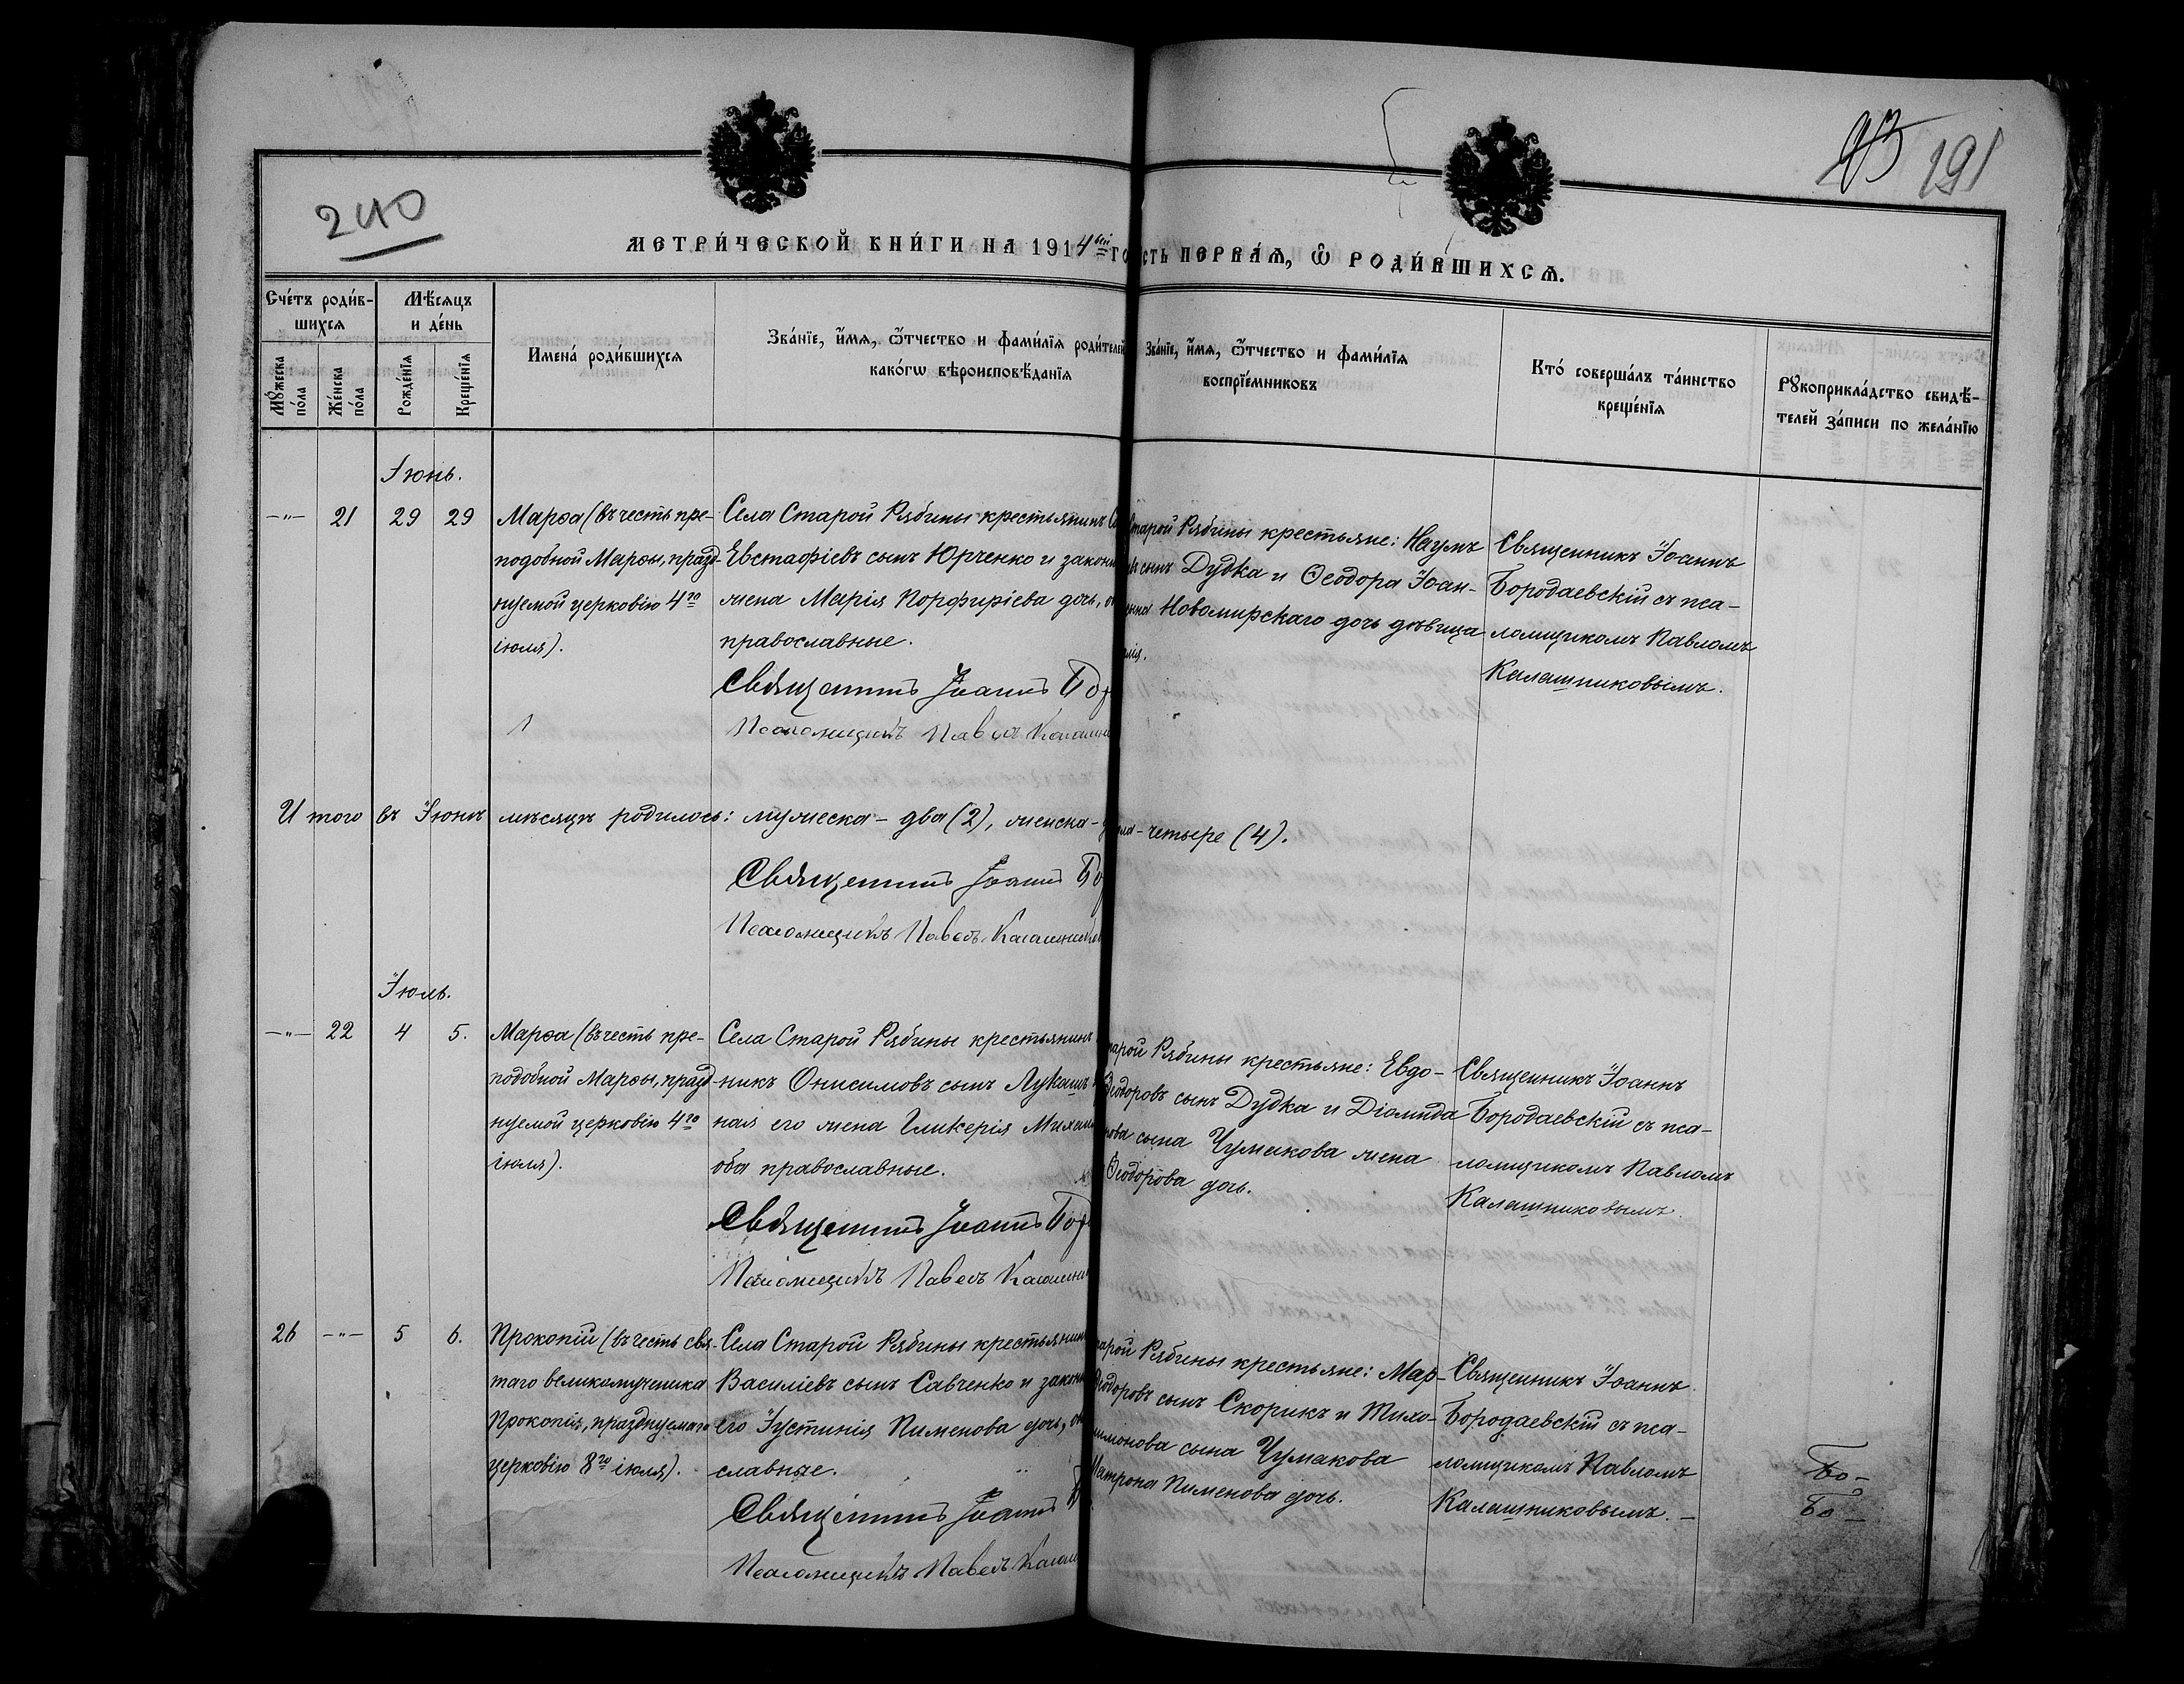 240
93 191
МЕТРИ́ЧЕСКОЙ КНИ́ГИ НА 1914 ый ГО
СТЬ ПЕРВА́Ѧ, Ѽ РОДИ́ВШИХСѦ.
Сче́тъ роди́в-
шихсѧ
Мѣ́сѧцъ
и де́нь
Мꙋ́жеска по́ла
Же́нска по́ла
Рожде́нїѧ
Креще́нїѧ
Имена́ роди́вшихсѧ
Зва́нїе, и́мѧ, ѻ́тчество и фами́лїѧ роди́телей
како́гѡ вѣроисповѣ́данїѧ
Зва́нїе, и́мѧ, ѻ́тчество и фами́лїѧ
воспрїе́мниковъ
Кто́ соверша́лъ та́инство
креще́нїѧ
Рꙋкоприкла́дство свидѣ́-
телей за́писи по жела́нїю
Іюнь.
-"- 21 29 29
Марѳа (въ честь пре-
подобной Марѳы, празд-
нуемой церковію 4го
іюля).
Села Старой Рябины крестьянинъ
Евстафіевъ сынъ Юрченко и законн
жена Марія Порфиріева дочь, о
православные.
Священникъ Іоаннъ Бор
Псаломщикъ Павелъ Калашн
тарой Рябины крестьяне: Наумъ
въ сынъ Дудка и Ѳеодора Іоан-
нна Новомирскаго дочь дѣвица
лія.
Священникъ Іоаннъ
Бородаевскій съ пса-
ломщикомъ Павломъ
Калашниковымъ.
Итого въ Іюнѣ мѣсяцѣ родилось: мужеска - два (2), женска -
ла - четыре (4).
Священникъ Іоаннъ Бо
Псаломщикъ Павелъ Калашник
Іюль.
-"- 22 4 5.
Марѳа (въ честь пре-
подобной Марѳы, празд-
нуемой церковію 4го
іюля).
Села Старой Рябины крестьянинъ
никъ Онисимовъ сынъ Лукашъ
ная его жена Гликерія Михаил
оба православные.
Священникъ Іоаннъ Бор
Псаломщикъ Павелъ Калашни
тарой Рябины крестьяне: Евдо-
Ѳеодоровъ сынъ Дудка и Діомида
нова сына Чумакова жена
Ѳеодорова дочь.
Священникъ Іоаннъ
Бородаевскій съ пса-
ломщикомъ Павломъ
Калашниковымъ.
26 -"- 5 6.
Прокопій (въ честь свя-
таго великомученика
Прокопія, празднуемаго
церковію 8го іюля).
Села Старой Рябины крестьянин
Василіевъ сынъ Савченко и законн
его Іустинія Пименова дочь, о
славные.
Священникъ Іоаннъ
Псаломщикъ Павелъ Калаш
тарой Рябины крестьяне: Мар-
Ѳеодоровъ сынъ Скорикъ и Тимо-
имонова сына Чумакова
Матрона Пименова дочь.
Священникъ Іоаннъ
Бородаевскій съ пса-
ломщикомъ Павломъ
Калашниковымъ. -
Бо-
Бо-